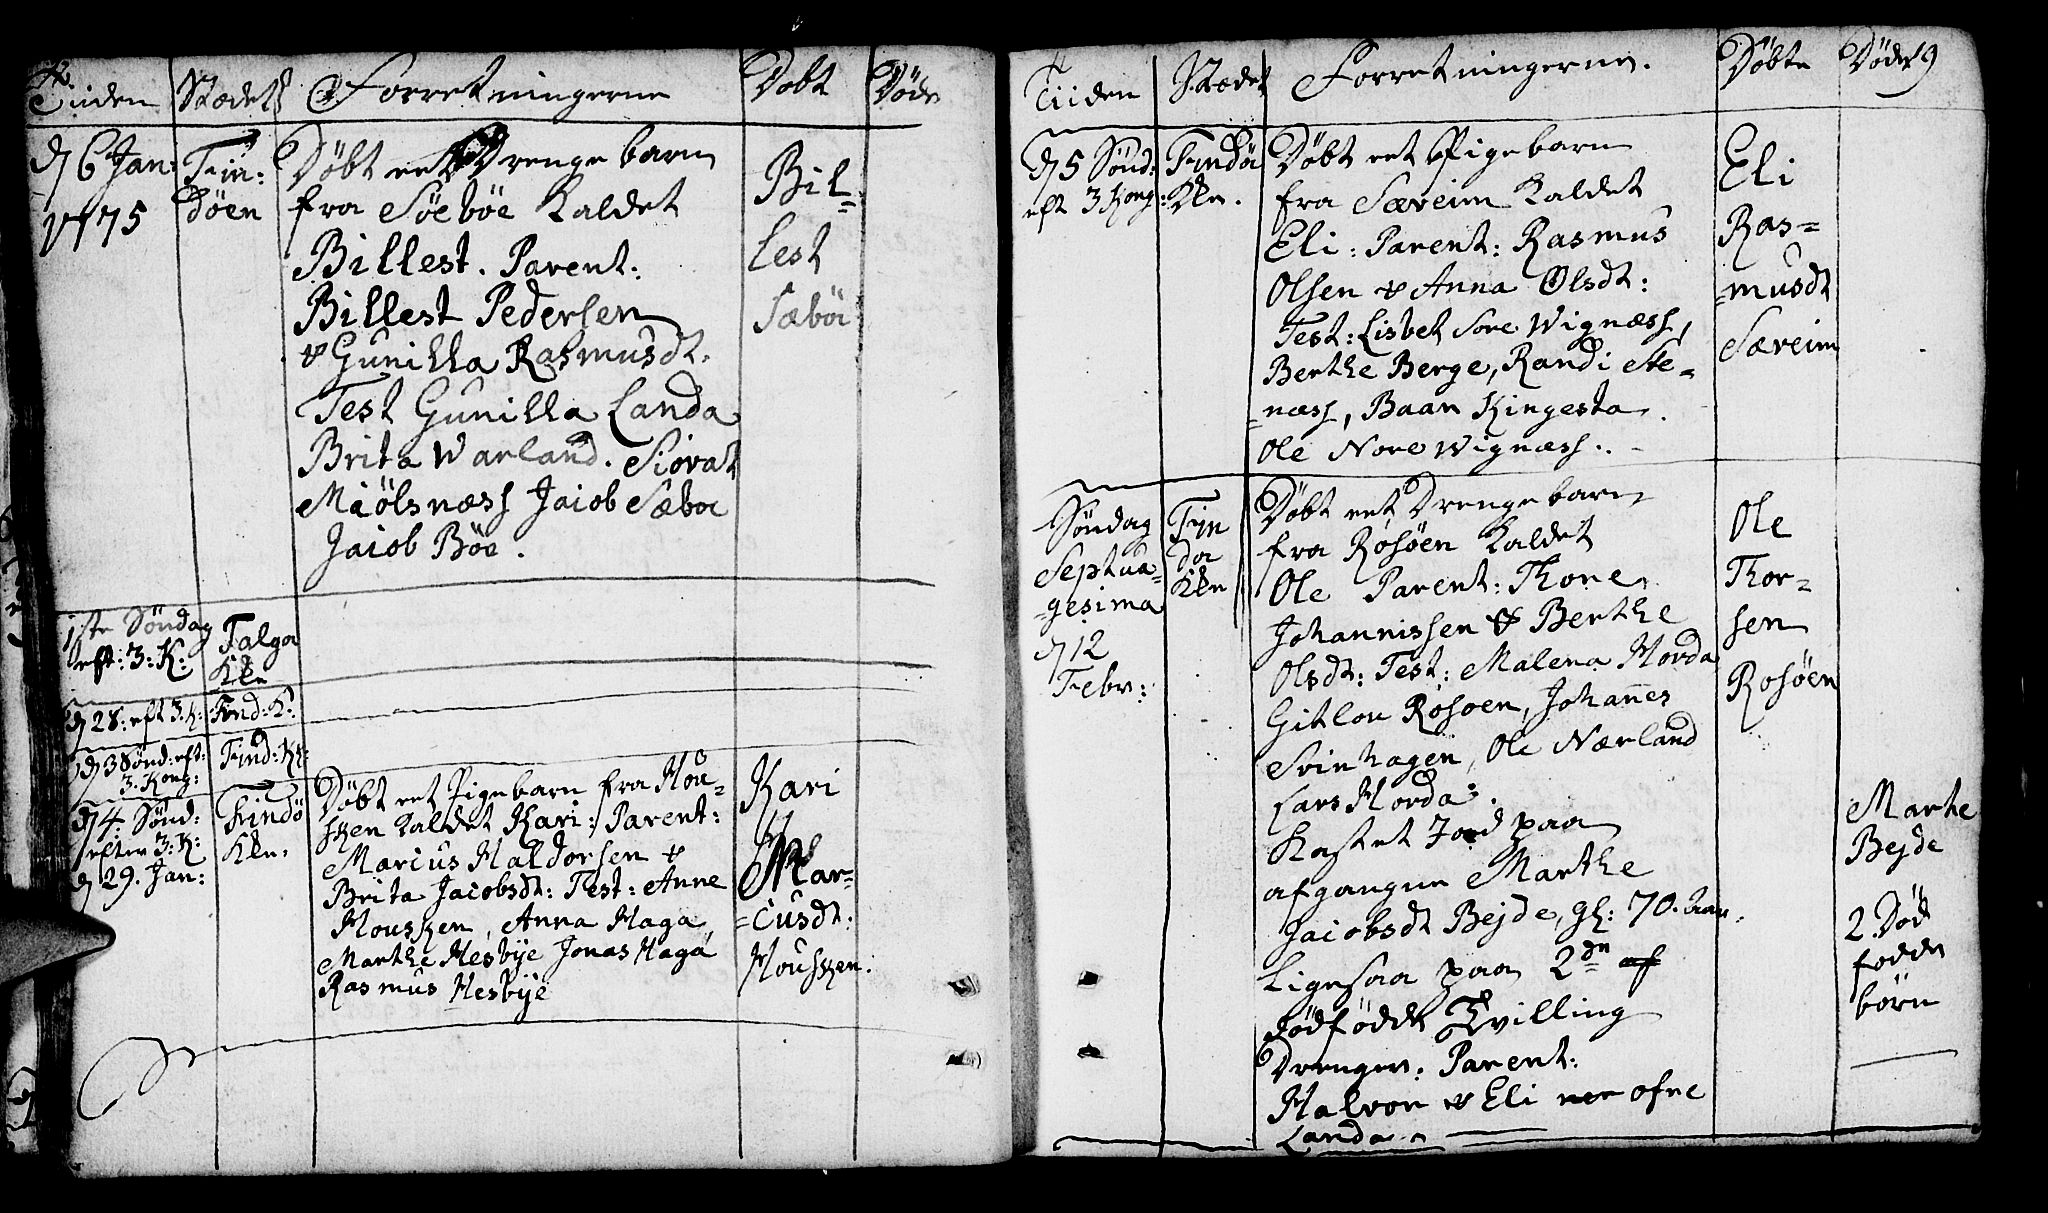 Tiiden Stædet Forretningerne Døbt Døde
d 6 Jan: 1775
Fin:
döen
Döbt eet Drenge barn
fra Söeböe Kaldet
Billest. Parent:
Billest Pedersen
& Gunilla Rasmusdt.
Test Gunilla Landa
Brita Warland. Siovat
Miölsnæss Jacob Sæboe
Jacob Böe.
Bil=
lest
Sæböe
1ste Söndag
eft: 3: K:
Talgø
Kke
d 28: eft 3. K: Find: K:
d 3 Sönd: eft:
3. Kong:
Find: K:
d 4. Sönd:
efter 3: K:
d 29. Jan:
Findö
Kke.
Döbt eet Pigebarn fra Hou=
sken Kaldet Kari: Parent:
Marcus Haldorsen &
Brita Jacobsdt: Test: Anne
Housken, Anna Haga,
Marthe Hesbye Jonas Haga
Rasmus Hesbye
Kari
Mar=
=cusdt:
Housken.
Tiiden Stædet Forretningerne. Døbte Døde 9
d 5 Sönd:
eft 3 Kong:
Findöe
Kke.
Döbt eet Pigebarn
fra Særeim Kaldet
Eli: Parent: Rasmus
Olsen & Anna Olsdt:
Test: Lisbet Sore Wignæss,
Berthe Berge, Randi Ste=
=næss, Baar Kingesta.
Ole Nore Wignæss.
Eli
Ras=
=musdt
Særeim
Söndag
Septua=
=gesima
d 12
Febr:
Fin
dö
Kke
Döbt eet Drengebarn
fra Rosöen Kaldet
Ole Parent: Thore
Johannissen & Berthe
Olsdt: Test: Malena Horda
Gitlou Rosoen, Johannes
Svinhagen, Ole Nærland
Lars Horda.
Kastet Jord paa
afgangne Marthe
Jacobsdt Bejde, gl: 70. Aar.
Ligesaa paa 2de af
dödfödde Tvilling
Drenger. Parent:
Halvor & Eli ofne
Landa.
Ole
Thor=
sen
Rosöen
Marte
Bejde
2 Död
fodde
börn